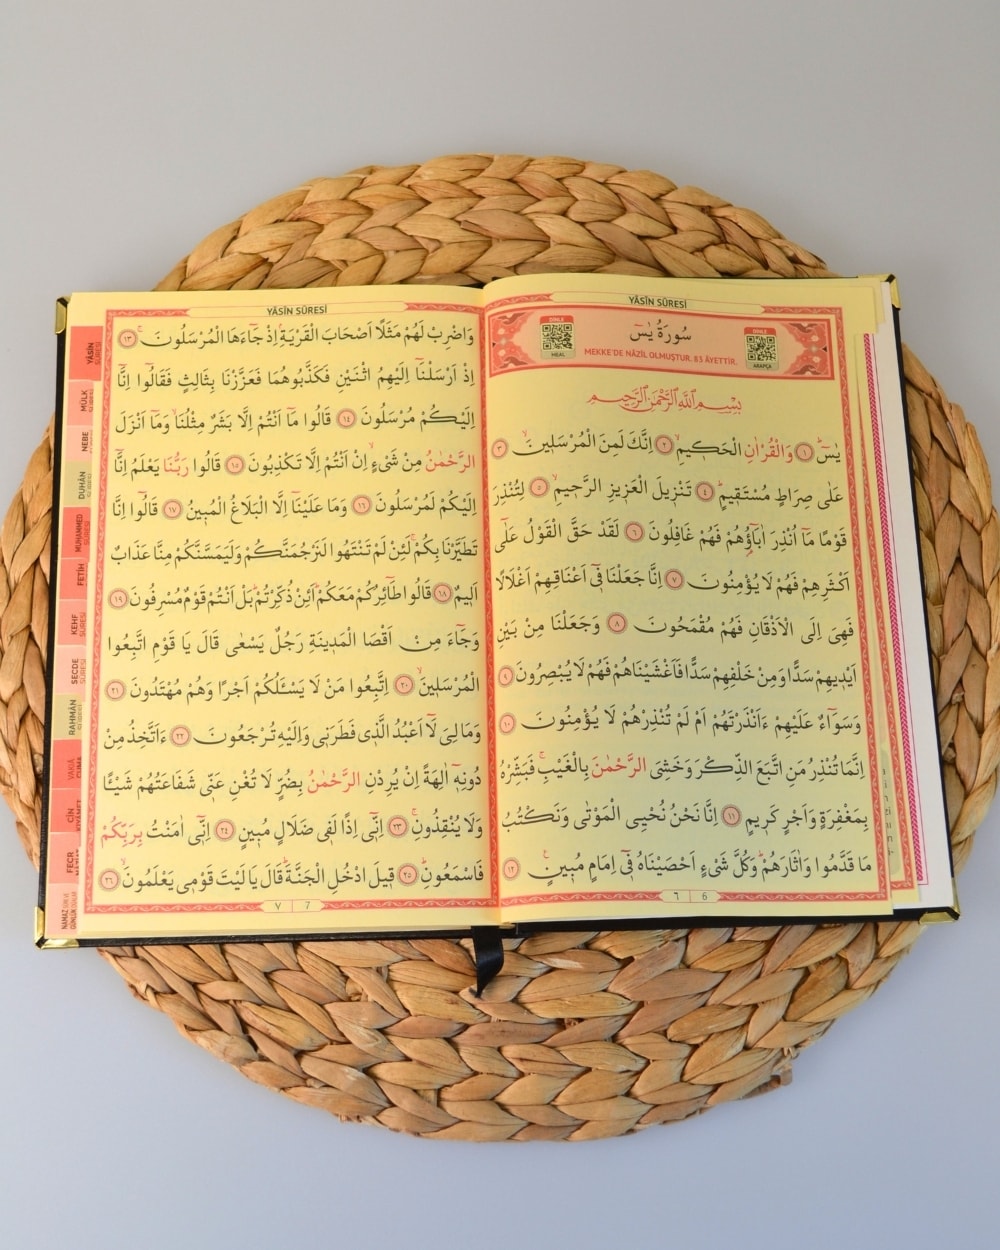 YÂSÎN SÛRESİ
DİNLE
MEAL
سُورَةُ يٰسٓ
DİNLE
ARAPÇA
MEKKE'DE NÂZİL OLMUŞTUR. 83 ÂYETTİR.
بِسْمِ اللّٰهِ الرَّحْمٰنِ الرَّحِيمِ
يٰسٓ ۚ ﴿١﴾ وَالْقُرْاٰنِ الْحَكِيمِۙ ﴿٢﴾ اِنَّكَ لَمِنَ الْمُرْسَلِينَۙ ﴿٣﴾
عَلٰى صِرَاطٍ مُسْتَقِيمٍۜ ﴿٤﴾ تَنْزِيلَ الْعَزِيزِ الرَّحِيمِۙ ﴿٥﴾ لِتُنْذِرَ
قَوْمًا مَٓا اُنْذِرَ اٰبَٓاؤُ۬هُمْ فَهُمْ غَافِلُونَ ﴿٦﴾ لَقَدْ حَقَّ الْقَوْلُ عَلٰٓى
اَكْثَرِهِمْ فَهُمْ لَا يُؤْمِنُونَ ﴿٧﴾ اِنَّا جَعَلْنَا فٓى اَعْنَاقِهِمْ اَغْلَالًا
فَهِىَ اِلَى الْاَذْقَانِ فَهُمْ مُقْمَحُونَ ﴿٨﴾ وَجَعَلْنَا مِنْ بَيْنِ
اَيْدِيهِمْ سَدًّا وَمِنْ خَلْفِهِمْ سَدًّا فَاَغْشَيْنَاهُمْ فَهُمْ لَا يُبْصِرُونَ ﴿٩﴾
وَسَوَٓاءٌ عَلَيْهِمْ ءَاَنْذَرْتَهُمْ اَمْ لَمْ تُنْذِرْهُمْ لَا يُؤْمِنُونَ ﴿١٠﴾
اِنَّمَا تُنْذِرُ مَنِ اتَّبَعَ الذِّكْرَ وَخَشِىَ الرَّحْمٰنَ بِالْغَيْبِۚ فَبَشِّرْهُ
بِمَغْفِرَةٍ وَاَجْرٍ كَرِيمٍ ﴿١١﴾ اِنَّا نَحْنُ نُحْيِى الْمَوْتٰى وَنَكْتُبُ
مَا قَدَّمُوا وَاٰثَارَهُمْۜ وَكُلَّ شَىْءٍ اَحْصَيْنَاهُ فٓى اِمَامٍ مُبِينٍۚ ﴿١٢﴾
٦ 6
YÂSÎN SÛRESİ
وَاضْرِبْ لَهُمْ مَثَلًا اَصْحَابَ الْقَرْيَةِۢ اِذْ جَٓاءَهَا الْمُرْسَلُونَۚ ﴿١٣﴾
اِذْ اَرْسَلْنَٓا اِلَيْهِمُ اثْنَيْنِ فَكَذَّبُوهُمَا فَعَزَّزْنَا بِثَالِثٍ فَقَالُٓوا اِنَّٓا
اِلَيْكُمْ مُرْسَلُونَ ﴿١٤﴾ قَالُوا مَٓا اَنْتُمْ اِلَّا بَشَرٌ مِثْلُنَاۙ وَمَٓا اَنْزَلَ
الرَّحْمٰنُ مِنْ شَىْءٍۙ اِنْ اَنْتُمْ اِلَّا تَكْذِبُونَ ﴿١٥﴾ قَالُوا رَبُّنَا يَعْلَمُ اِنَّٓا
اِلَيْكُمْ لَمُرْسَلُونَ ﴿١٦﴾ وَمَا عَلَيْنَٓا اِلَّا الْبَلَاغُ الْمُبِينُ ﴿١٧﴾ قَالُٓوا اِنَّا
تَطَيَّرْنَا بِكُمْۚ لَئِنْ لَمْ تَنْتَهُوا لَنَرْجُمَنَّكُمْ وَلَيَمَسَّنَّكُمْ مِنَّا عَذَابٌ
اَلِيمٌ ﴿١٨﴾ قَالُوا طَٓائِرُكُمْ مَعَكُمْۜ اَئِنْ ذُكِّرْتُمْۜ بَلْ اَنْتُمْ قَوْمٌ مُسْرِفُونَ ﴿١٩﴾
وَجَٓاءَ مِنْ اَقْصَا الْمَدِينَةِ رَجُلٌ يَسْعٰى قَالَ يَا قَوْمِ اتَّبِعُوا
الْمُرْسَلِينَۙ ﴿٢٠﴾ اِتَّبِعُوا مَنْ لَا يَسْـَٔلُكُمْ اَجْرًا وَهُمْ مُهْتَدُونَ ﴿٢١﴾
وَمَا لِىَ لَٓا اَعْبُدُ الَّذِى فَطَرَنِى وَاِلَيْهِ تُرْجَعُونَ ﴿٢٢﴾ ءَاَتَّخِذُ مِنْ
دُونِهٓ اٰلِهَةً اِنْ يُرِدْنِ الرَّحْمٰنُ بِضُرٍّ لَا تُغْنِ عَنِّى شَفَاعَتُهُمْ شَيْـًٔا
وَلَا يُنْقِذُونِۚ ﴿٢٣﴾ اِنِّٓى اِذًا لَفِى ضَلَالٍ مُبِينٍ ﴿٢٤﴾ اِنِّٓى اٰمَنْتُ بِرَبِّكُمْ
فَاسْمَعُونِۜ ﴿٢٥﴾ قِيلَ ادْخُلِ الْجَنَّةَۜ قَالَ يَا لَيْتَ قَوْمِى يَعْلَمُونَۙ ﴿٢٦﴾
٧ 7
YÂSÎN SÛRESİ
MÜLK
NEBE
DUHÂN
MUHAMMED SÛRESİ
FETİH
KEHF SÛRESİ
SECDE SÛRESİ
RAHMÂN
VAKIÂ
CUMA
CİN
KIYÂMET
FECR
NAMAZ